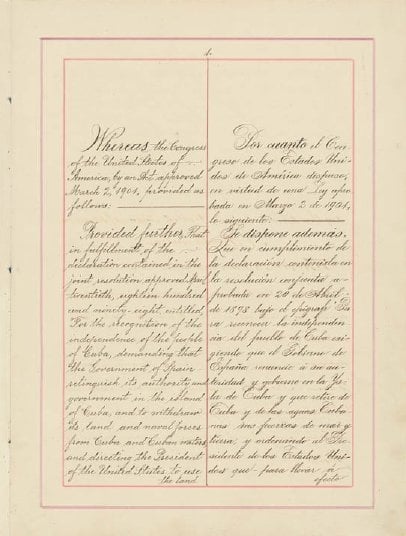 1.
Whereas the Congress
of the United States of
America, by an Act approved
March 2, 1901, provided as
follows:
Provided further, That
in fulfillment of the
declaration contained in the
joint resolution approved April
twentieth, eighteen hundred
and ninety-eight, entitled,
"For the recognition of the
independence of the people
of Cuba, demanding that
the Government of Spain
relinquish its authority and
government in the island
of Cuba, and to withdraw
its land and naval forces
from Cuba and Cuban waters,
and directing the President
of the United States to use
the land
Por cuanto el Con-
greso de los Estados Uni-
dos de América dispuso,
en virtud de una Ley apro-
bada en Marzo 2 de 1901,
lo siguiente:
Se dispone además,
Que en cumplimiento de
la declaración contenida en
la resolución conjunta a-
probada en 20 de Abril
de 1898 bajo el epígrafe "Pa-
ra reconocer la independen-
cia del pueblo de Cuba exi-
giendo que el Gobierno de
España renuncie á su au-
toridad y gobierno en la Is-
la de Cuba y que retire de
Cuba y de las aguas Cuba-
nas sus fuerzas de mar y
tierra, y ordenando al Pre-
sidente de los Estados Uni-
dos que para llevar á
efecto